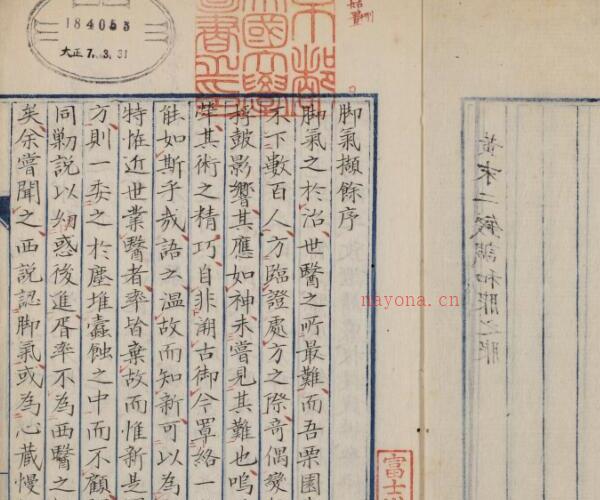 184055
大正 7. 3. 31
脚氣擷餘序
脚氣之於治世醫之所最難而吾栗園
不下數百人方臨證處方之際奇偶變
桴鼓影響其應如神未嘗見其難也嗚
其術之精巧自非溯古御今罩絡一
能如斯乎哉語云温故而知新可以為
特恠近世業醫者率皆棄故而惟新是
方則一委之於塵堆蠹蝕之中而不顧
同勦説以惑後進胥率不為西醫之
矣余嘗聞之西説認脚氣或為心藏慢
富士
nayona.cn